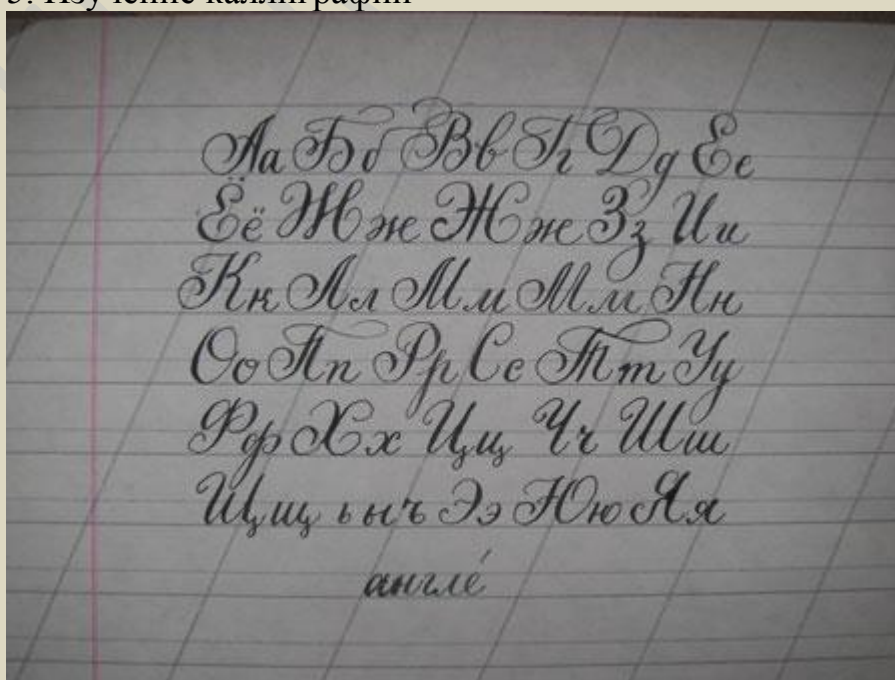 5. Изучение каллиграфии
Аа Бб Вв Гг Дд Ее
Ёё Жж Жж Зз Ии
Кк Лл Мм Мм Нн
Оо Пп Рр Сс Тт Уу
Фф Хх Цц Чч Шш
Щщ ь ы ъ Ээ Юю Яя
англе́